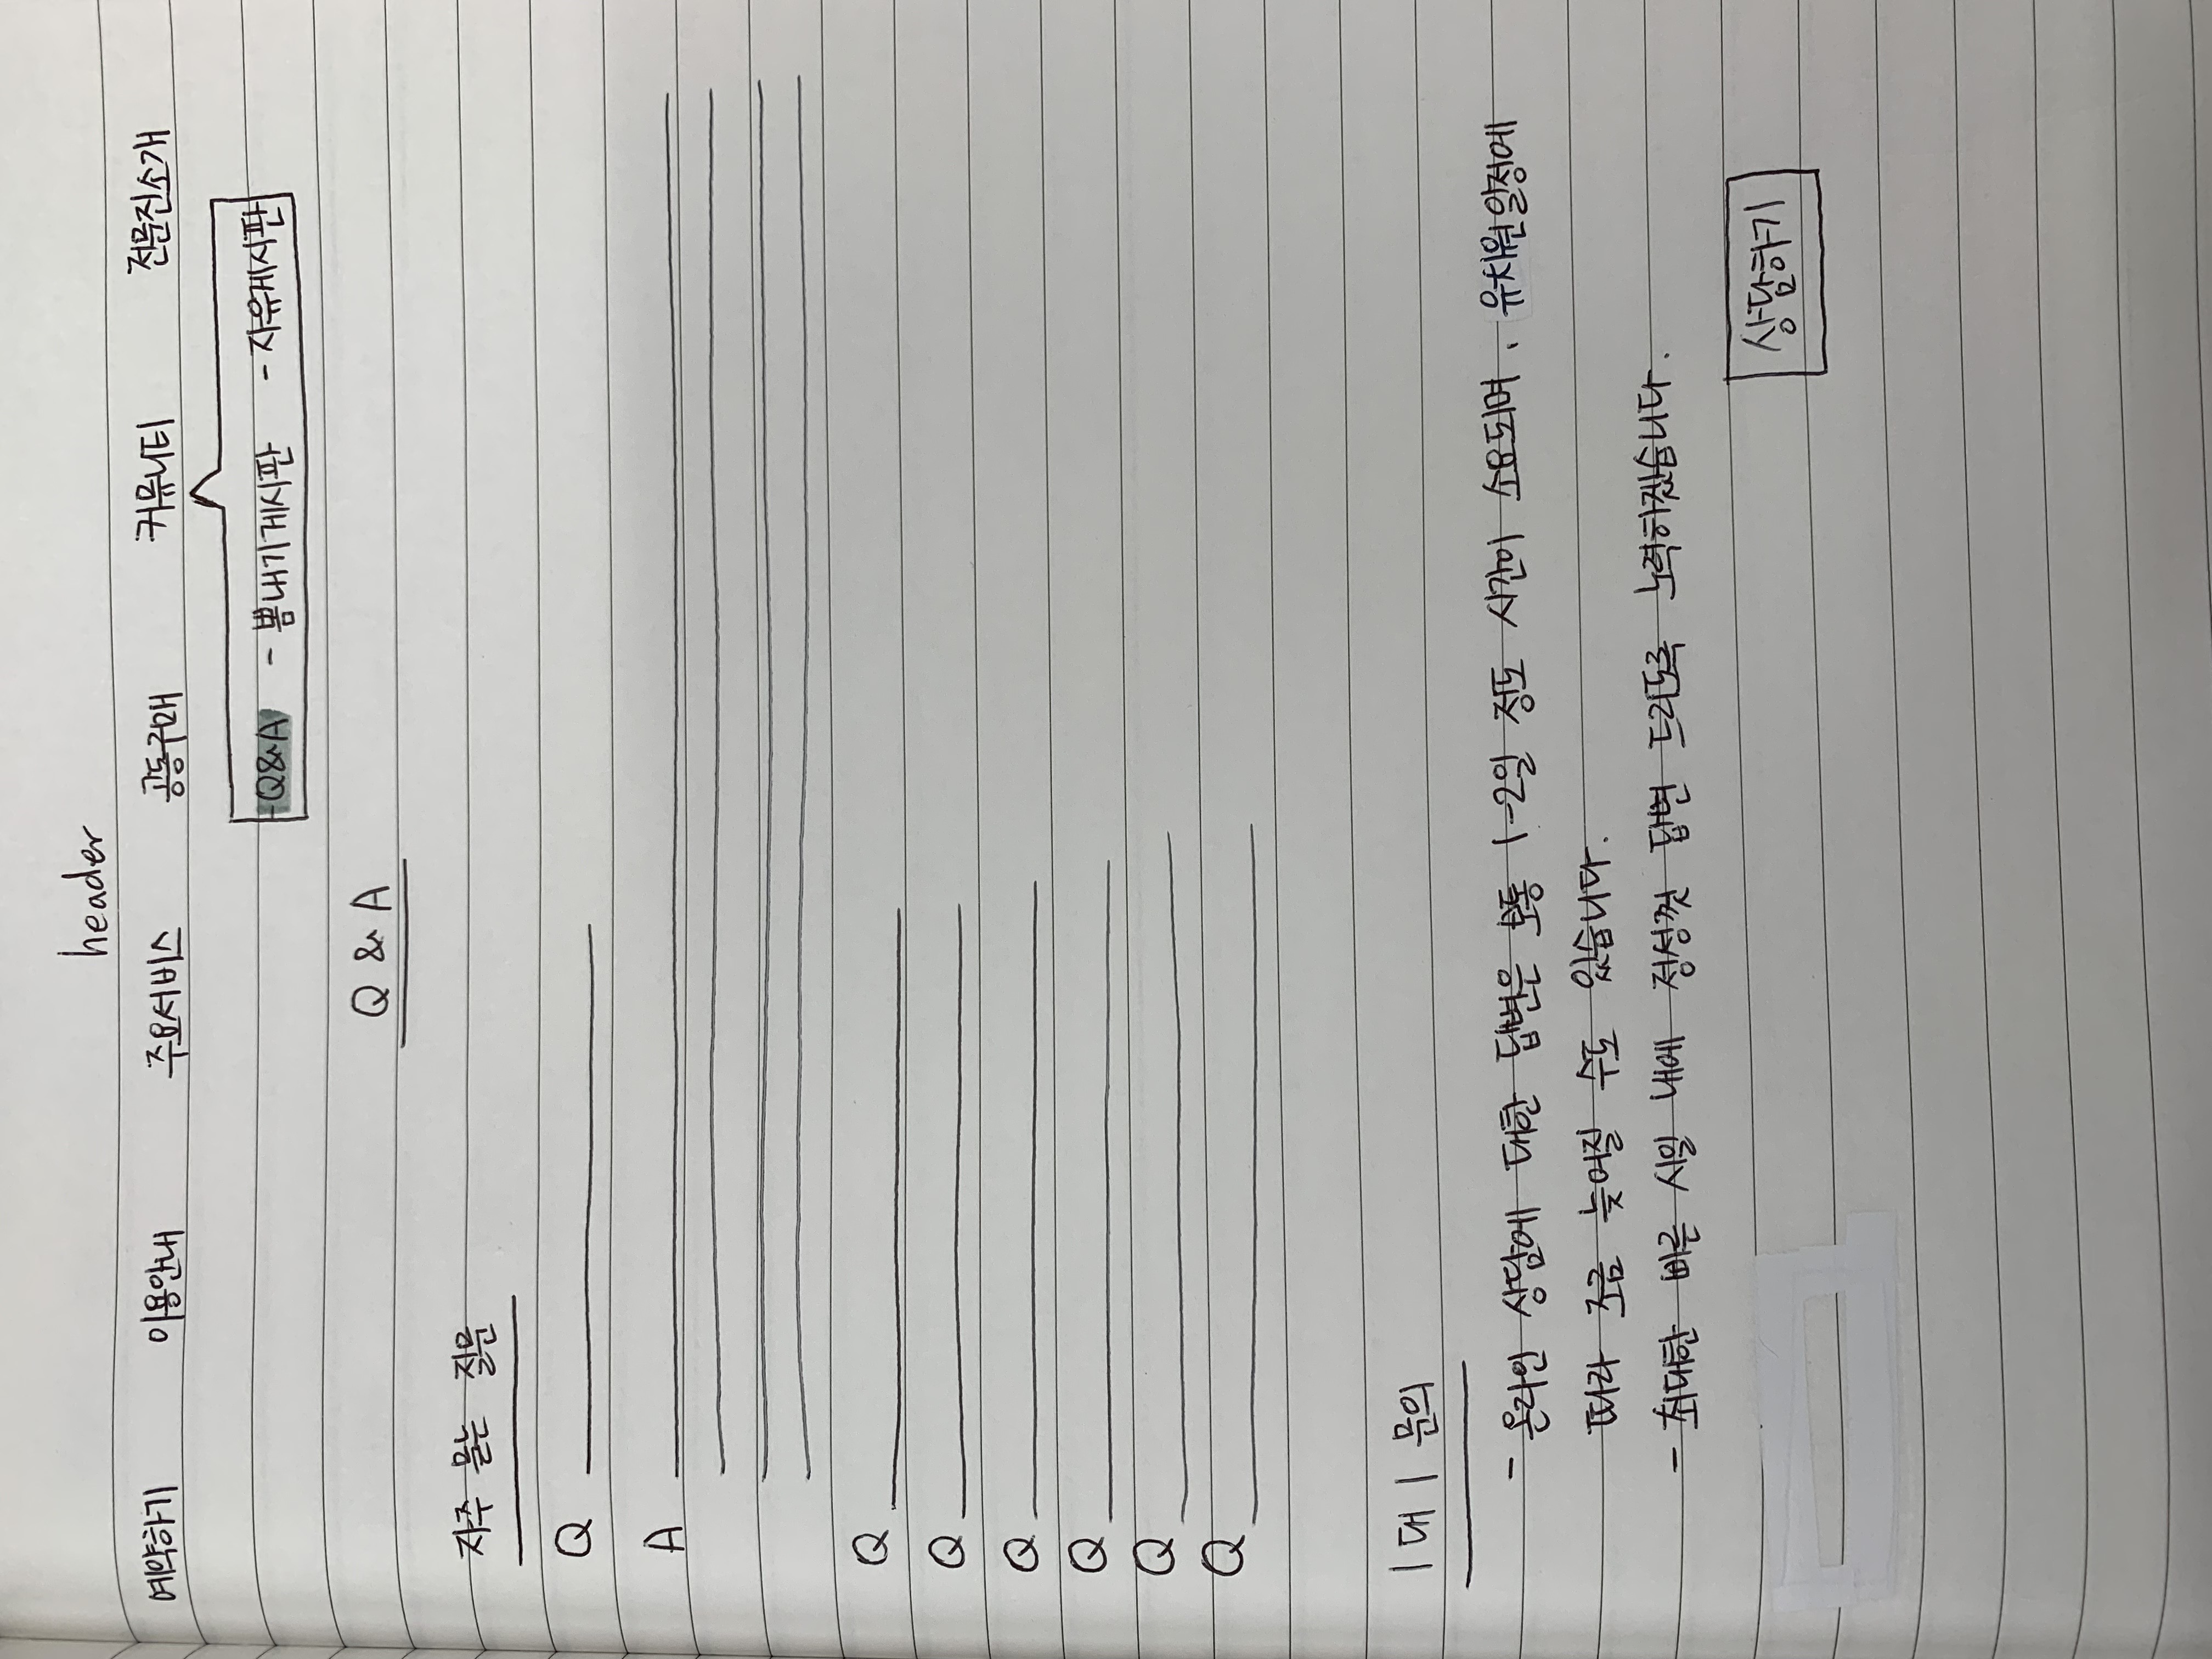 header
예약하기 이용안내 주요서비스 공동구매 커뮤니티 전문진소개
-Q&A - 뽐내기게시판 - 자유게시판
Q & A
자주 묻는 질문
Q
A
Q
Q
Q
Q
Q
Q
1대1 문의
- 온라인 상담에 대한 답변은 보통 1-2일 정도 시간이 소요되며, 유치원일정에
따라 조금 늦어질 수도 있습니다.
- 최대한 빠른 시일 내에 정성껏 답변 드리도록 노력하겠습니다.
상담하기